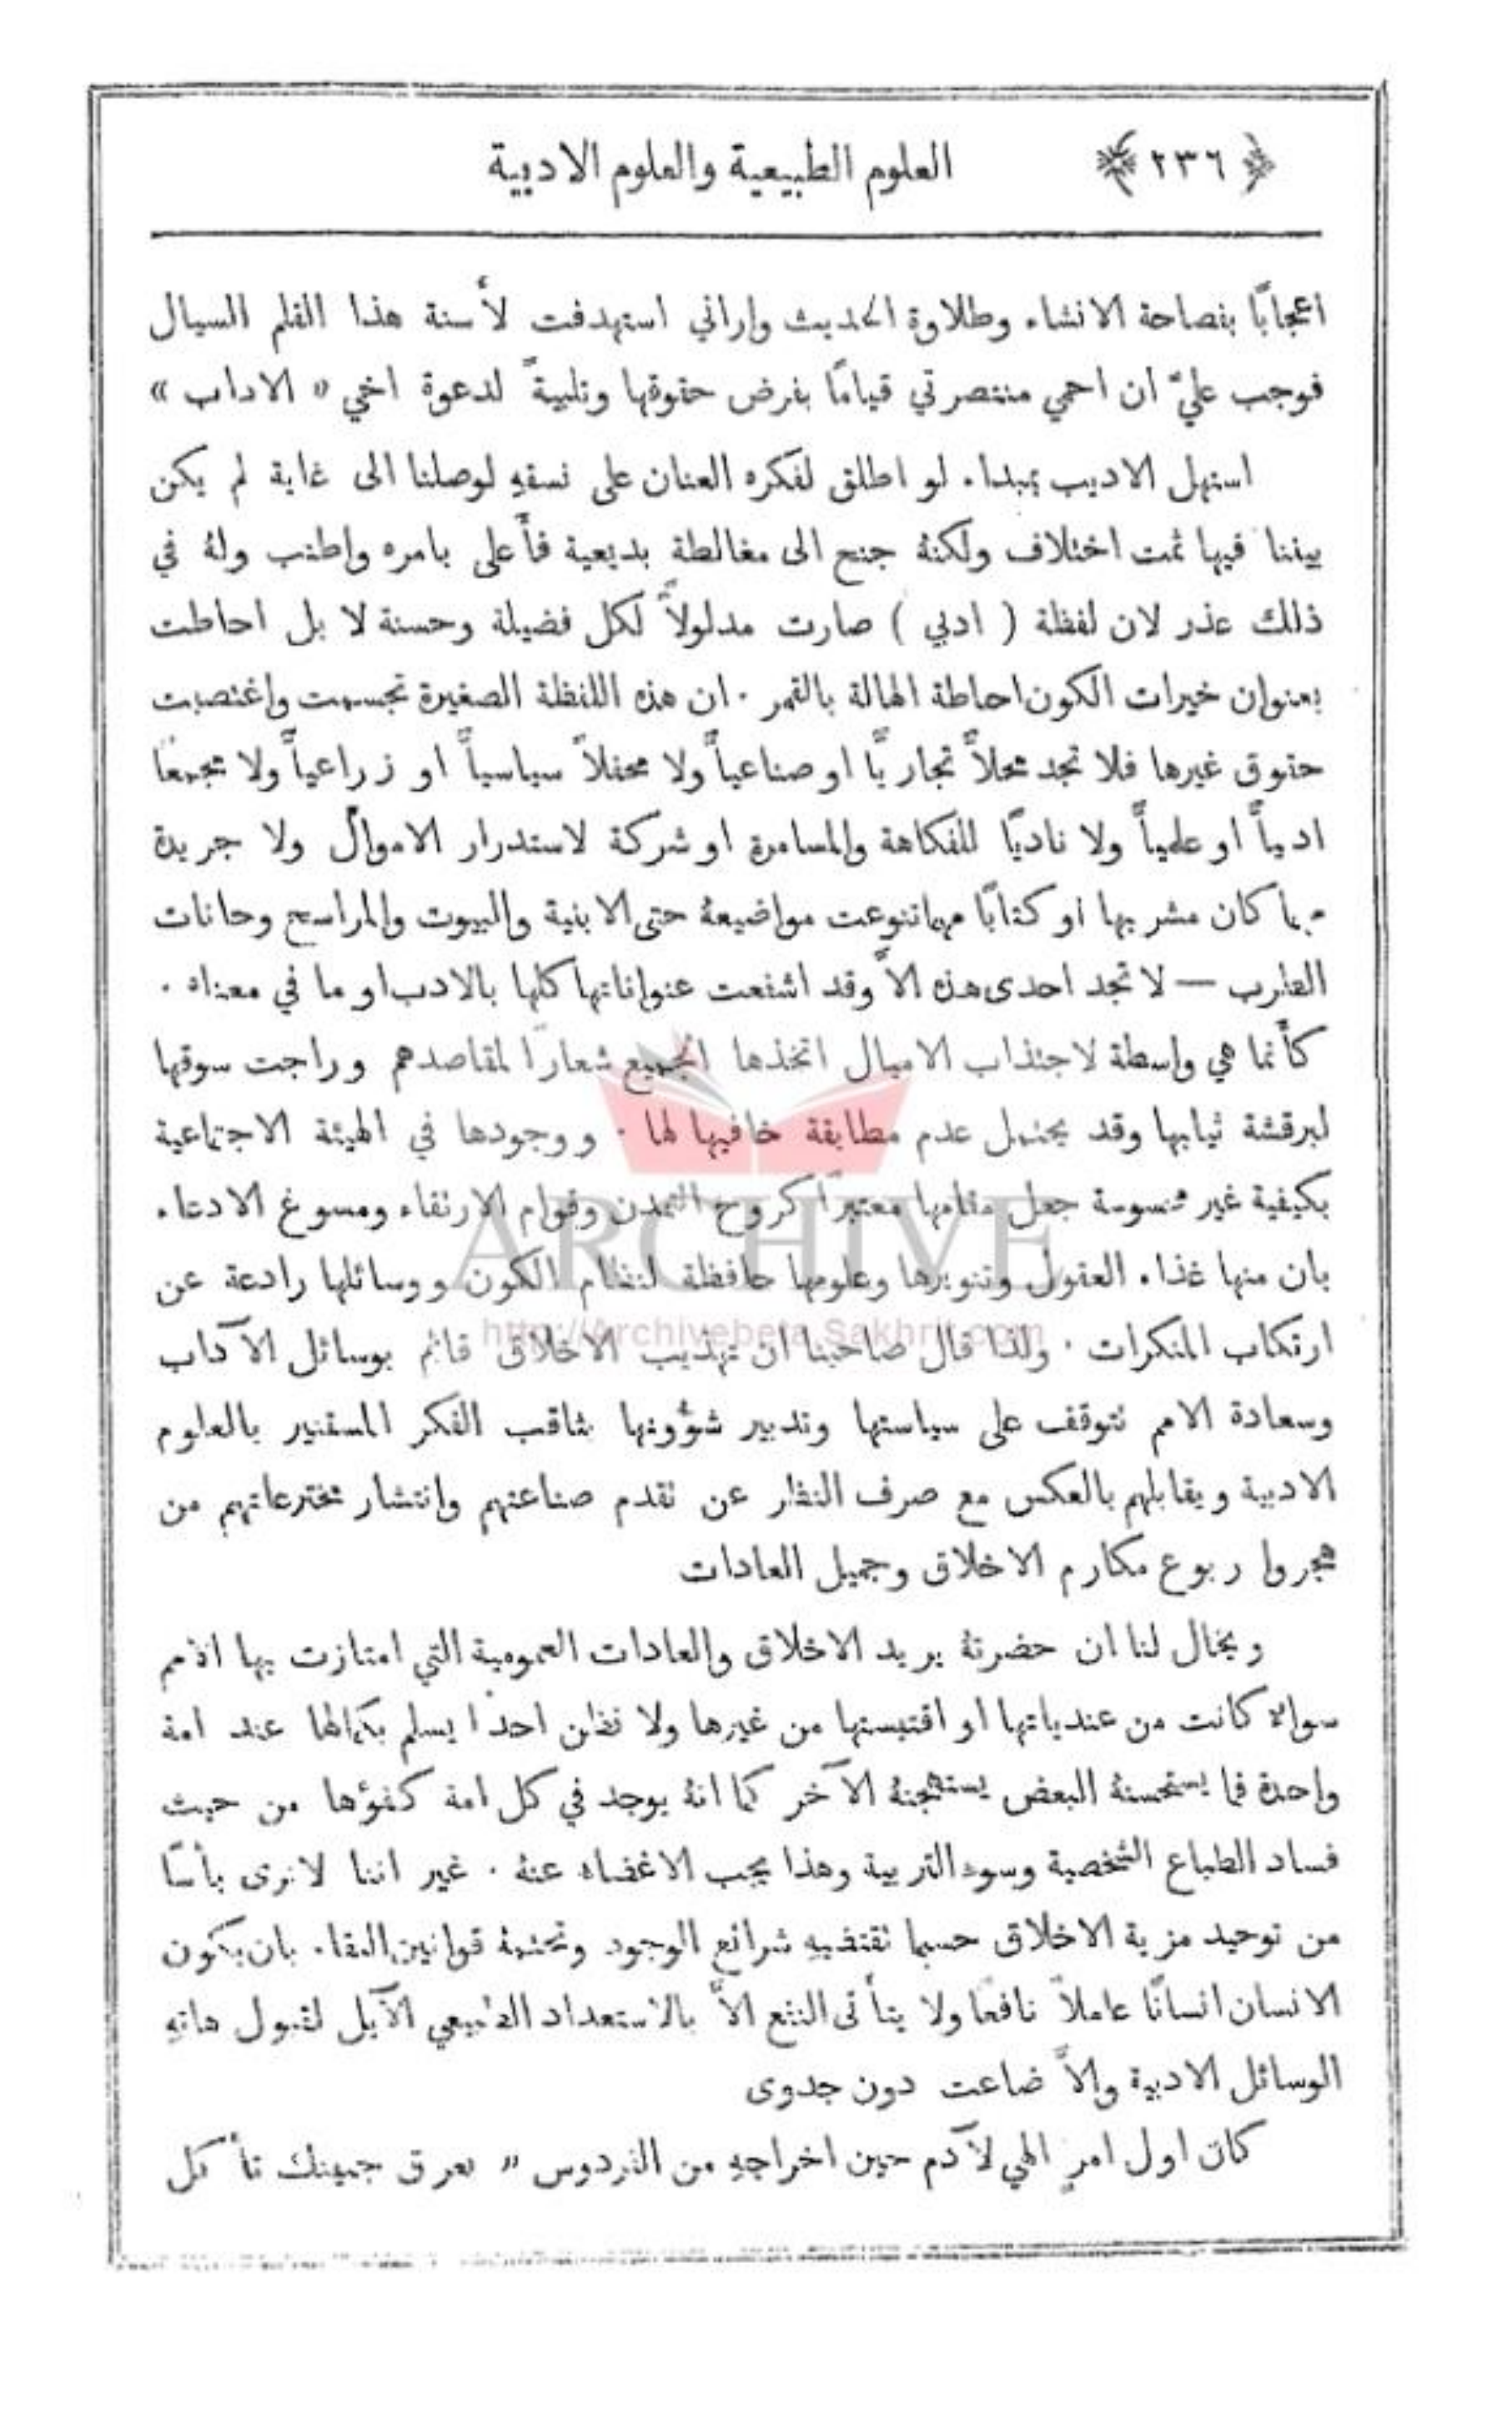 ﴿ ٢٣٦ ﴾ العلوم الطبيعية والعلوم الادبية
اعجابًا بفصاحة الانشاء وطلاوة الحديث واراني استهدفت لأسنة هذا القلم السيال
فوجب عليَّ ان احمي منتصرتي قيامًا بفرض حقوقها وتلبيةً لدعوة اخي « الاداب »
استهل الاديب بمبداء لو اطلق لفكره العنان على نسقهِ لوصلنا الى غاية لم يكن
بيننا فيها ثمت اختلاف ولكنهُ جنح الى مغالطة بديعية فأعلى بامره واطنب ولهُ في
ذلك عذر لان لفظة ( ادبي ) صارت مدلولاً لكل فضيلة وحسنة لا بل احاطت
بعنوان خيرات الكون احاطة الهالة بالقمر . ان هذه اللفظة الصغيرة تجسمت واغتصبت
حقوق غيرها فلا تجد محلاًّ تجاريًّا او صناعيًّا ولا محفلاً سياسيًّا او زراعيًّا ولا مجمعًا
ادبيًّا او علميًّا ولا ناديًا للفكاهة والمسامرة او شركة لاستدرار الاموال ولا جريدة
مهما كان مشربها او كتابًا مهما تنوعت مواضيعهُ حتى الابنية والبيوت والمراسح وحانات
الطرب — لا تجد احدى هذه الاَّ وقد اشفعت عنواناتها كلها بالادب او ما في معناه .
كأنما هي واسطة لاجتذاب الاميال اتخذها الجميع شعارًا لمقاصدهم وراجت سوقها
لبرقشة ثيابها وقد يحتمل عدم مطابقة خافيها لها . ووجودها في الهيئة الاجتماعية
بكيفية غير محسوسة جعل مقامها معتبرًا كروح التمدن وقوام الارتقاء ومسوغ الادعاء
بان منها غذاء العقول وتنويرها وعلومها حافظة لنظام الكون ووسائلها رادعة عن
ارتكاب المنكرات . ولذا قال صاحبنا ان تهذيب الاخلاق قائم بوسائل الآداب
وسعادة الامم تتوقف على سياستها وتدبير شؤونها بثاقب الفكر المستنير بالعلوم
الادبية ويقابلهم بالعكس مع صرف النظر عن تقدم صناعتهم وانتشار مخترعاتهم من
هجروا ربوع مكارم الاخلاق وجميل العادات
ويخال لنا ان حضرتهُ يريد الاخلاق والعادات العمومية التي امتازت بها الامم
سواءٌ كانت من عندياتها او اقتبستها من غيرها ولا نظن احدًا يسلم بكمالها عند امة
واحدة فما يستحسنهُ البعض يستهجنهُ الآخر كما انهُ يوجد في كل امة كفوءها من حيث
فساد الطباع الشخصية وسوء التربية وهذا يجب الاغضاء عنهُ . غير اننا لا نرى بأسًا
من توحيد مزية الاخلاق حسبما تقتضيهِ شرائع الوجود وتحتمهُ قوانين البقاء بان يكون
الانسان انسانًا عاملاً نافعًا ولا يتأتى النفع الاَّ بالاستعداد الطبيعي الآيل لقبول هاتهِ
الوسائل الادبية والاَّ ضاعت دون جدوى
كان اول امرٍ الهي لآدم حين اخراجهِ من الفردوس « بعرق جبينك تأكل
ARCHIVE
http://Archivebeta.Sakhrit.com